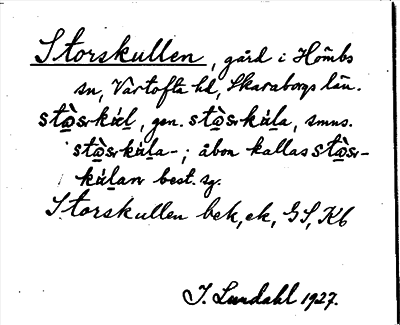 Storskullen, gård i Hömbs
sn, Vartofta hd, Skaraborgs län.
stɷ̀sʀkúl, gen. stɷ̀sʀkúla, smns.
stɷ̀sʀkúla-; åbon kallas stɷ̀sʀ-
kúlan best. sg.
Storskullen bek, ek, GS, Kb
I. Lundahl 1927.